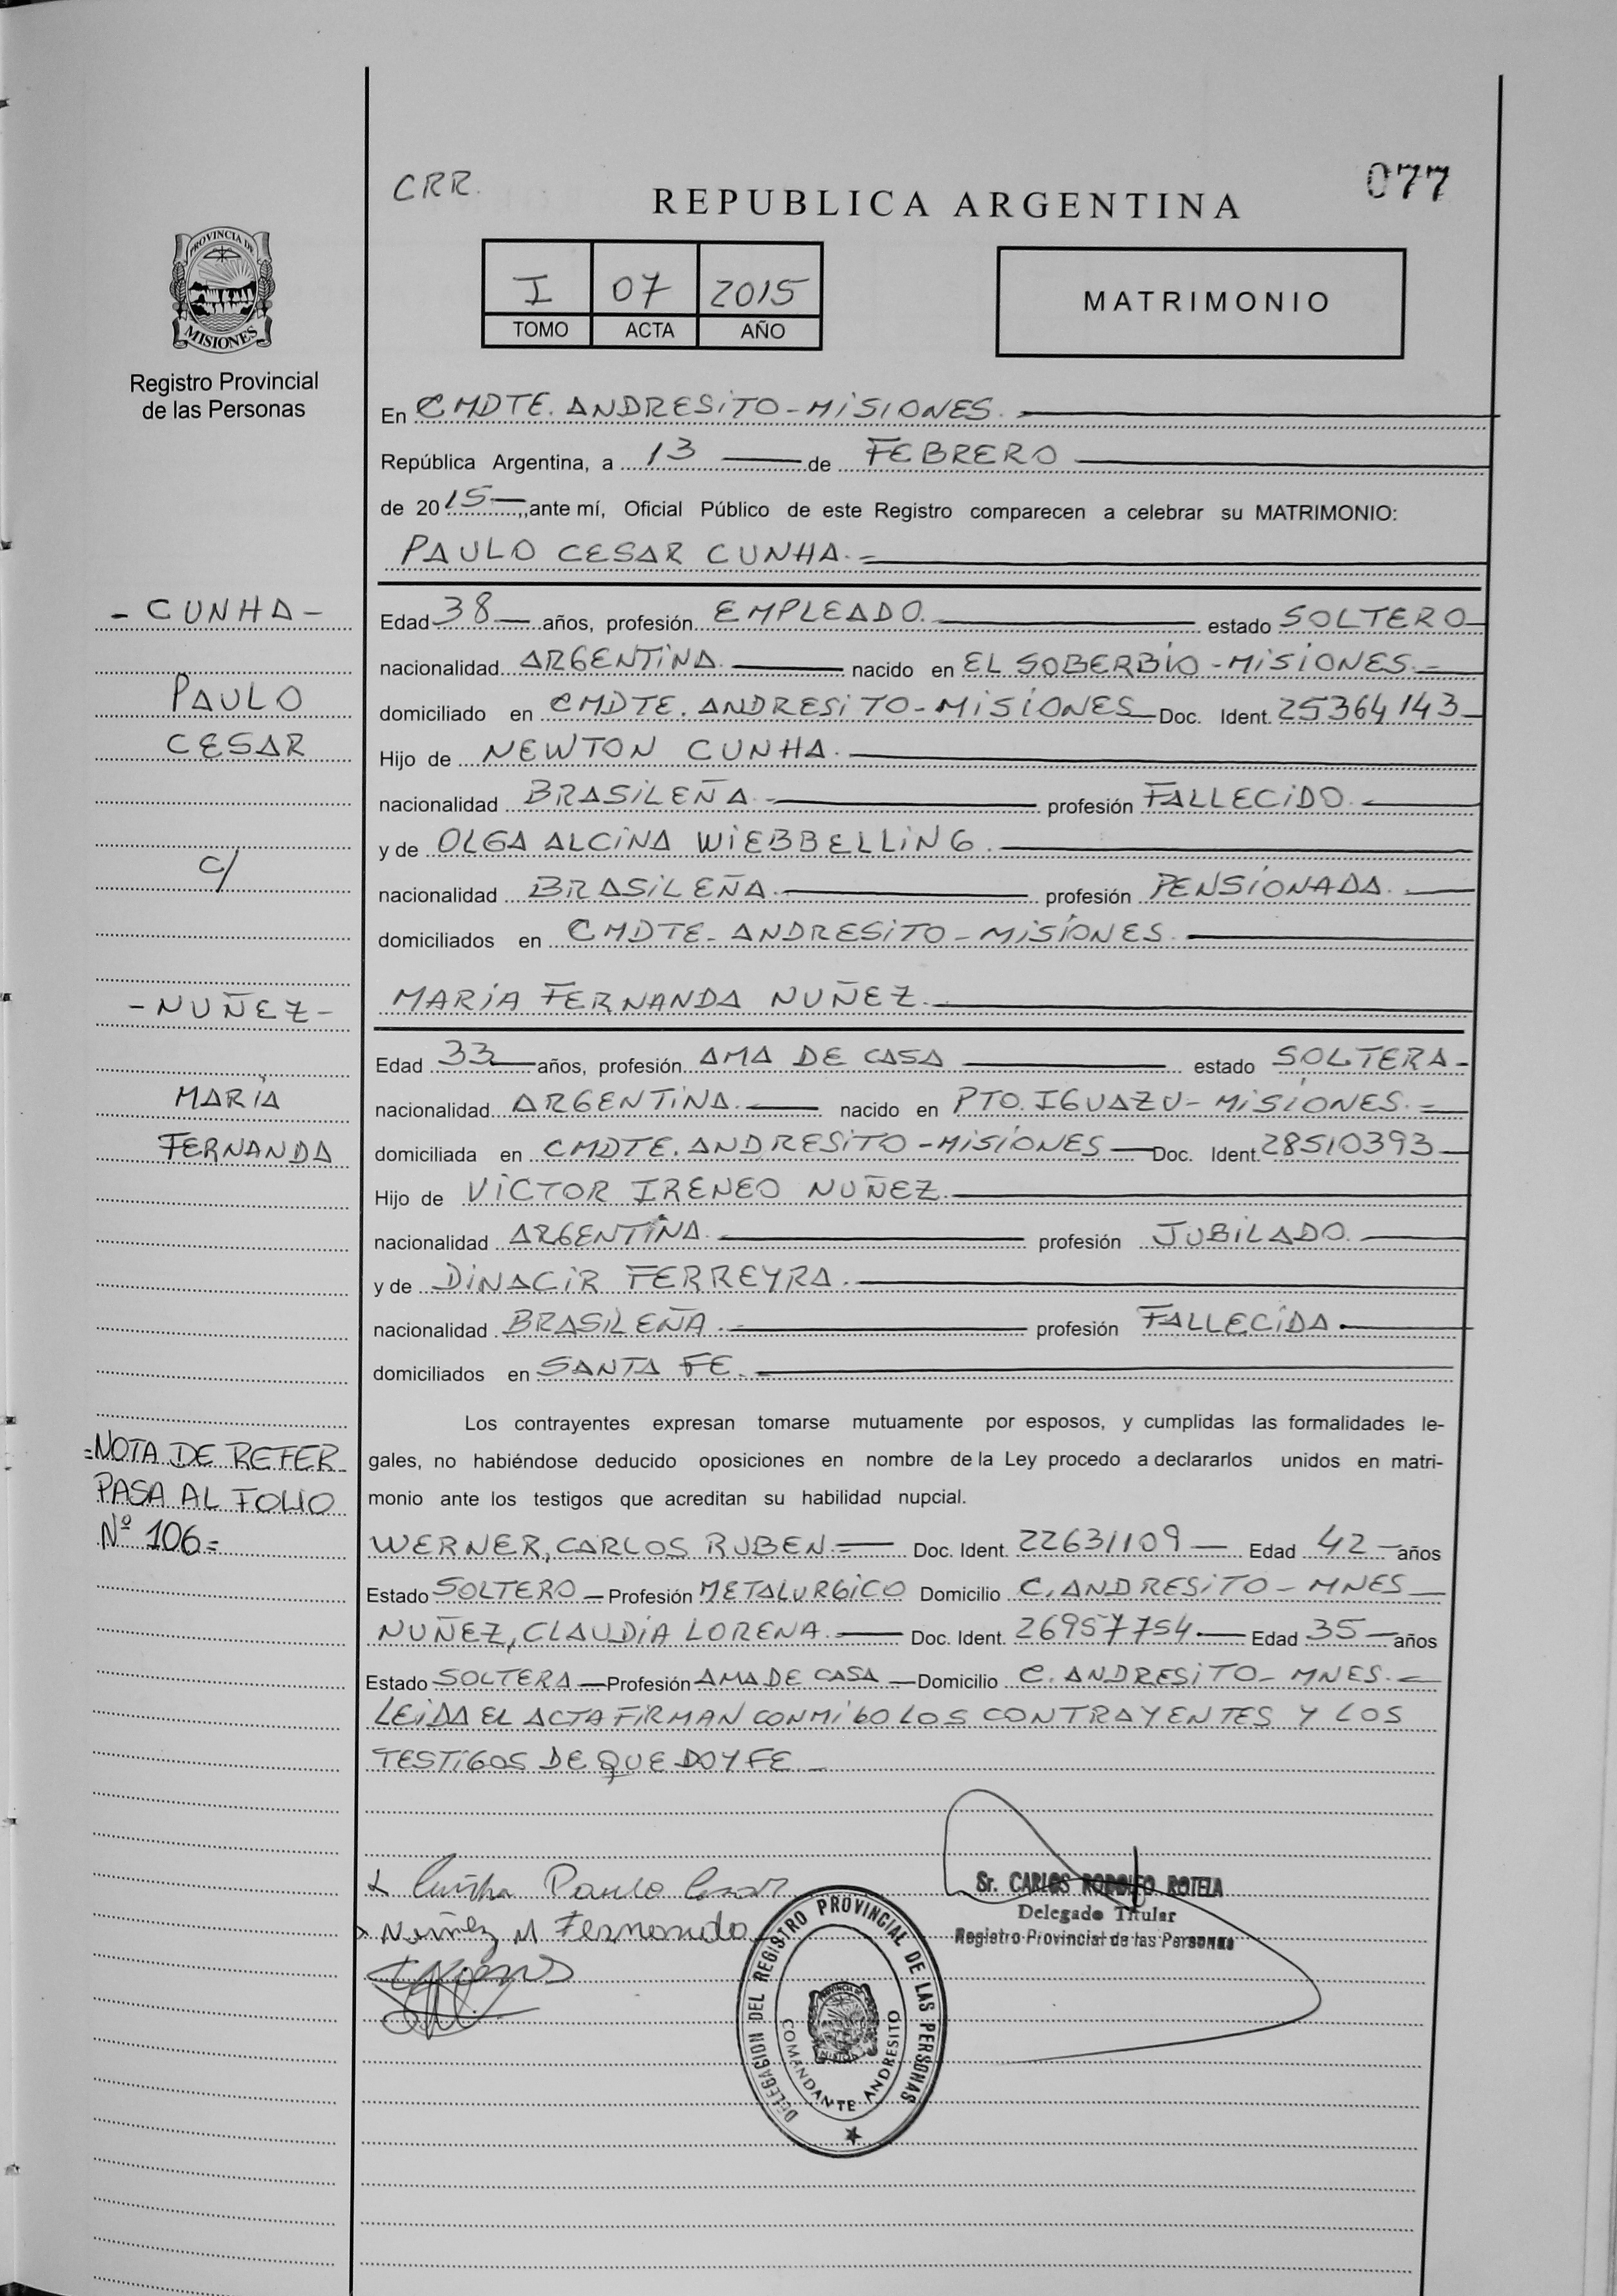 CRR.
077
REPUBLICA ARGENTINA
PROVINCIA DE
MISIONES
Registro Provincial
de las Personas
I 07 2015
TOMO ACTA AÑO
MATRIMONIO
En CMDTE. ANDRESITO - MISIONES.
República Argentina, a 13 de FEBRERO
de 2015, ante mí, Oficial Público de este Registro comparecen a celebrar su MATRIMONIO:
PAULO CESAR CUNHA.
- CUNHA -
PAULO
CESAR
c/
- NUÑEZ -
MARÍA
FERNANDA
=NOTA DE REFER
PASA AL FOLIO
Nº 106=
Edad 38 años, profesión EMPLEADO. estado SOLTERO
nacionalidad ARGENTINA. nacido en EL SOBERBIO - MISIONES.
domiciliado en CMDTE. ANDRESITO - MISIONES Doc. Ident. 25364143
Hijo de NEWTON CUNHA.
nacionalidad BRASILEÑA. profesión FALLECIDO.
y de OLGA ALCINA WIEBBELLING.
nacionalidad BRASILEÑA. profesión PENSIONADA.
domiciliados en CMDTE. ANDRESITO - MISIONES.
MARIA FERNANDA NUÑEZ.
Edad 33 años, profesión AMA DE CASA estado SOLTERA
nacionalidad ARGENTINA. nacido en PTO. IGUAZU - MISIONES.
domiciliada en CMDTE. ANDRESITO - MISIONES Doc. Ident. 28510393
Hijo de VICTOR IRENEO NUÑEZ.
nacionalidad ARGENTINA. profesión JUBILADO.
y de DINACIR FERREYRA.
nacionalidad BRASILEÑA. profesión FALLECIDA.
domiciliados en SANTA FE.
Los contrayentes expresan tomarse mutuamente por esposos, y cumplidas las formalidades le-
gales, no habiéndose deducido oposiciones en nombre de la Ley procedo a declararlos unidos en matri-
monio ante los testigos que acreditan su habilidad nupcial.
WERNER, CARLOS RUBEN. Doc. Ident. 22631109 Edad 42 años
Estado SOLTERO Profesión METALURGICO Domicilio C. ANDRESITO - MNES
NUÑEZ, CLAUDIA LORENA. Doc. Ident. 26957754 Edad 35 años
Estado SOLTERA Profesión AMA DE CASA Domicilio C. ANDRESITO - MNES.
LEIDA EL ACTA FIRMAN CONMIGO LOS CONTRAYENTES Y LOS
TESTIGOS DE QUE DOY FE
Cunha Paulo Cesar
Nuñez M Fernanda
Sr. CARLOS RODOLFO ROTELA
Delegado Titular
Registro Provincial de las Personas
DELEGACION DEL REGISTRO PROVINCIAL DE LAS PERSONAS
COMANDANTE ANDRESITO